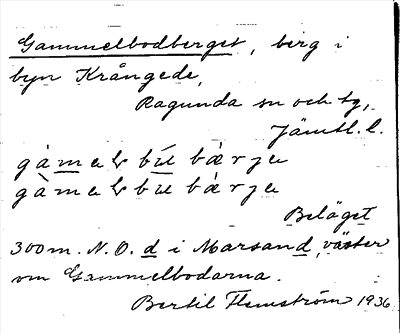 Gammelbodberget, berg i
byn Krångede,
Ragunda sn och tg,
Jämtl. l.
Beläget
300 m. N.O. d i Marsan d, väster
om Gammelbodarna.
Bertil Flemström 1936